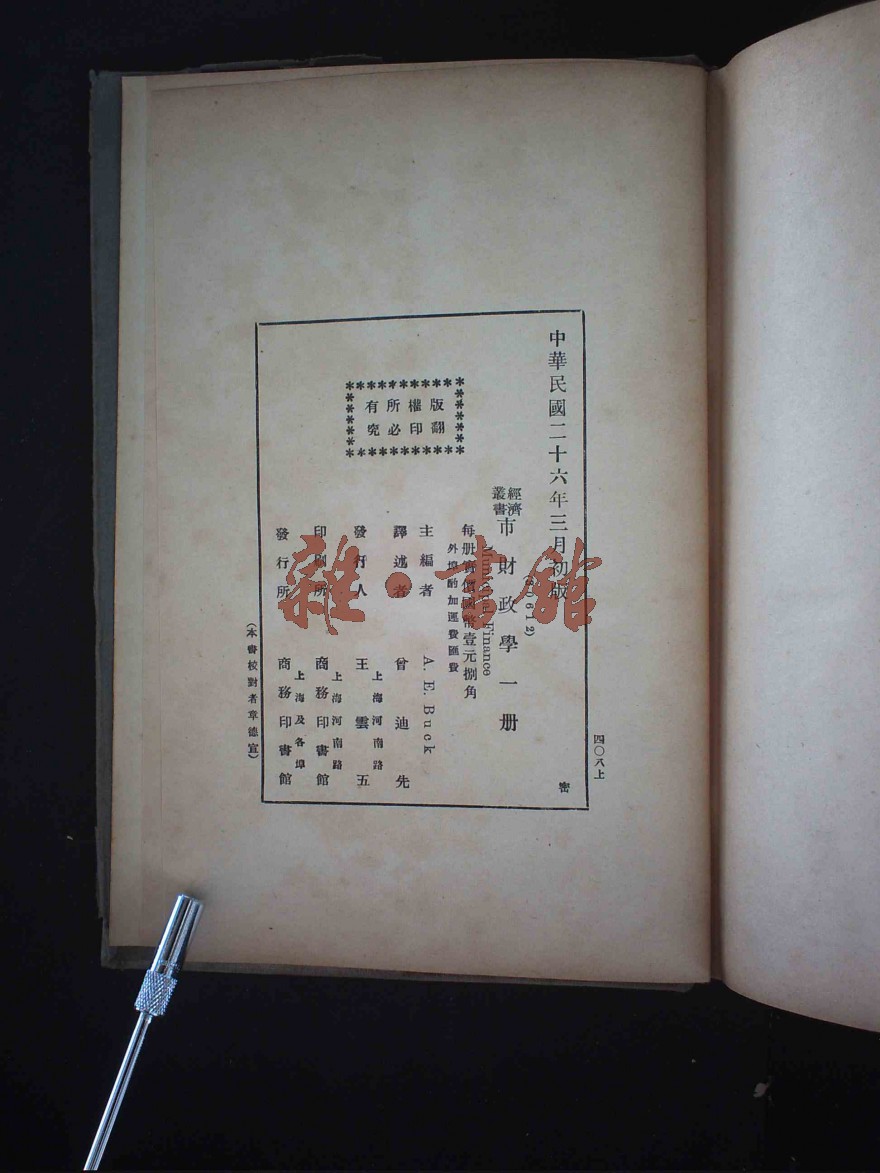 四〇八上
中華民國二十六年三月初版
密
經濟叢書
市財政學一册
Municipal Finance
每册實價國幣壹元捌角
外埠酌加運費匯費
主編者 A. E. Buck
譯述者 曾迪先
發行人 王雲五
上海河南路
印刷所 商務印書館
上海河南路
發行所 商務印書館
上海及各埠
版權所有
翻印必究
(本書校對者章德宣)
雜·書館